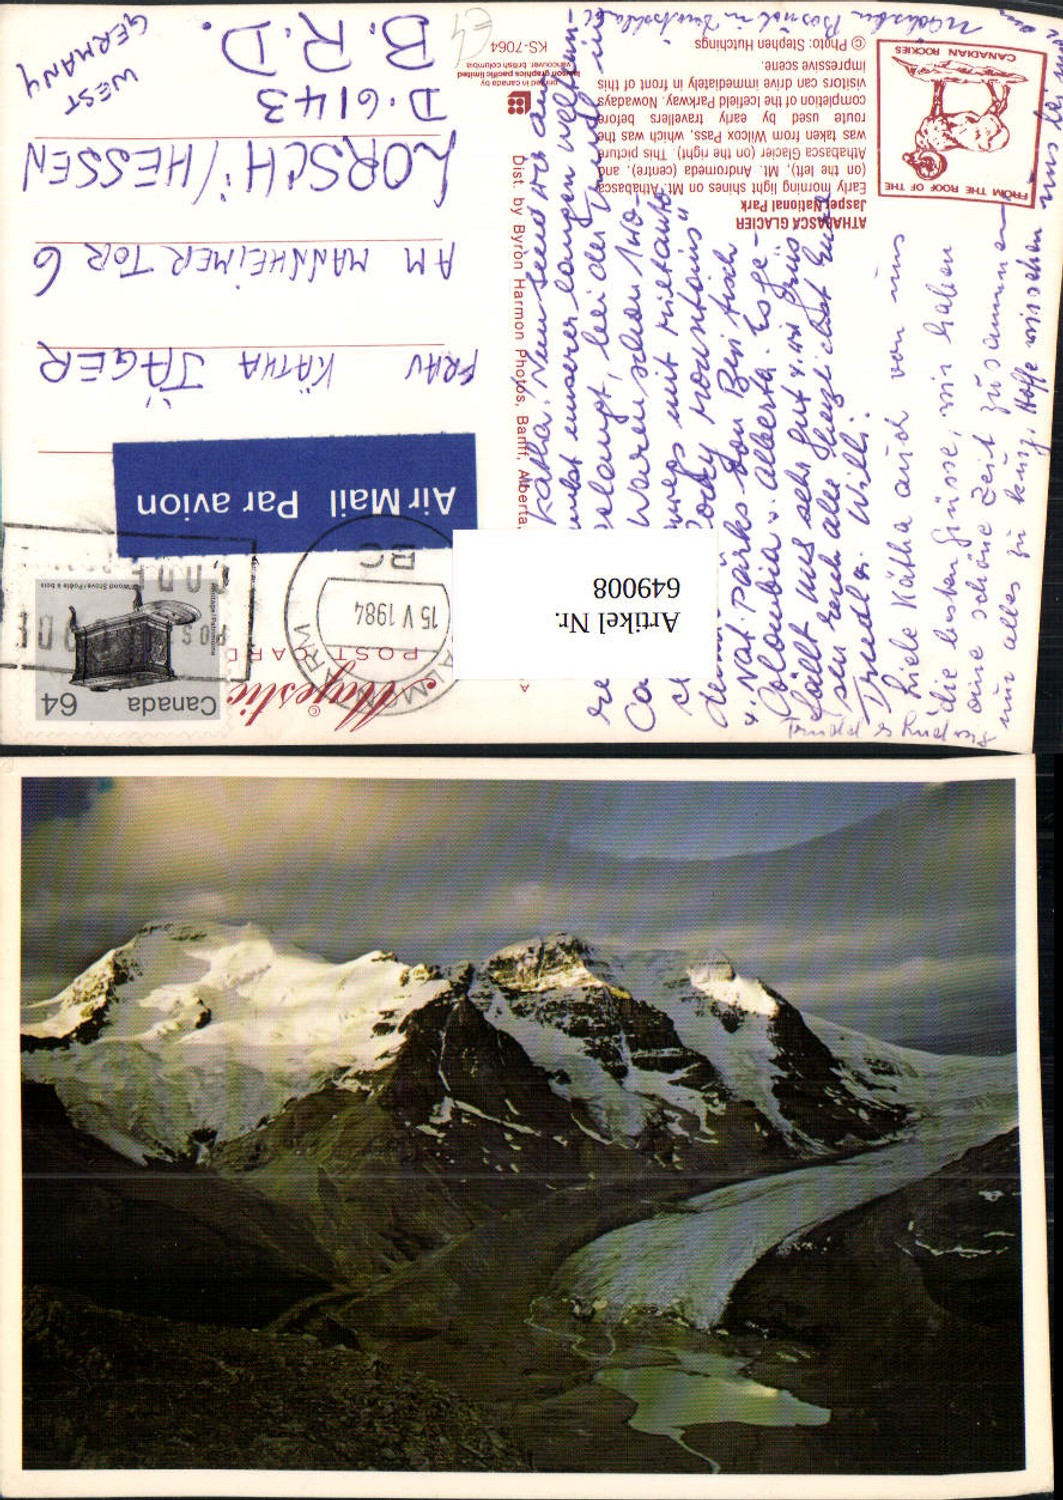 ATHABASCA GLACIER
Jasper National Park
Early morning light shines on Mt. Athabasca
(on the left), Mt. Andromeda (centre), and
Athabasca Glacier (on the right). This picture
was taken from Wilcox Pass, which was the
route used by early travellers before
completion of the Icefield Parkway. Nowadays
visitors can drive immediately in front of this
impressive scene.
© Photo: Stephen Hutchings
FROM THE ROOF OF THE
CANADIAN ROCKIES
Majestic
©
POSTCARD
Dist. by Byron Harmon Photos, Banff, Alberta,
printed in canada by
lawson graphics pacific limited
vancouver, british columbia
KS-7064
Canada 64
Heritage / Patrimoine
Wood Stove / Poêle à bois
15 V 1984
BC
Air Mail Par avion
Artikel Nr.
649008
FRAU KÄTHA JÄGER
AM MANNHEIMER TOR 6
LORSCH / HESSEN
D. 6143
B. R. D.
WEST
GERMANY
Kätha! Nun sind wir am
unserer langen
gelangt, bei der
waren schon
mit Mietauto
Rocky Mountains"
Nat. Parks von British
Columbia u. Alberta. Es ge-
fällt uns sehr gut u. wir grüs-
sen Euch alle herzlichst Eure
Trudl u. Willi.
Liebe Kätha auch von uns
die besten Grüsse, wir haben
eine schöne Zeit zusammen
nur alles zu kurz. Hoffe wir sehen
uns bei